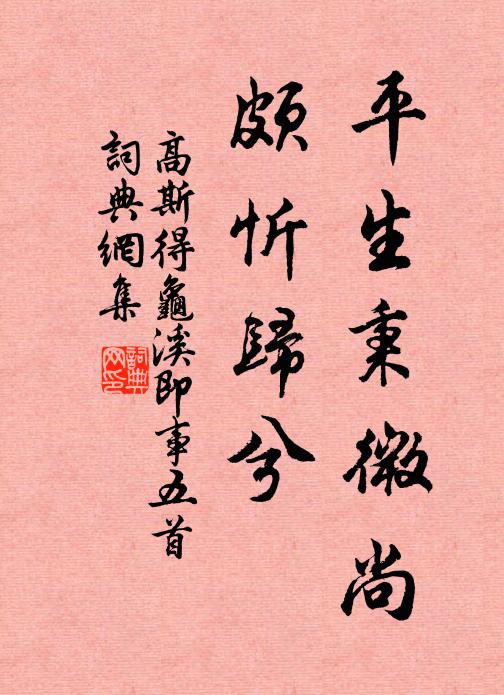 平生秉微尚
頗忻歸兮
高斯得龜溪即事五首
詞典網集
詞典網印